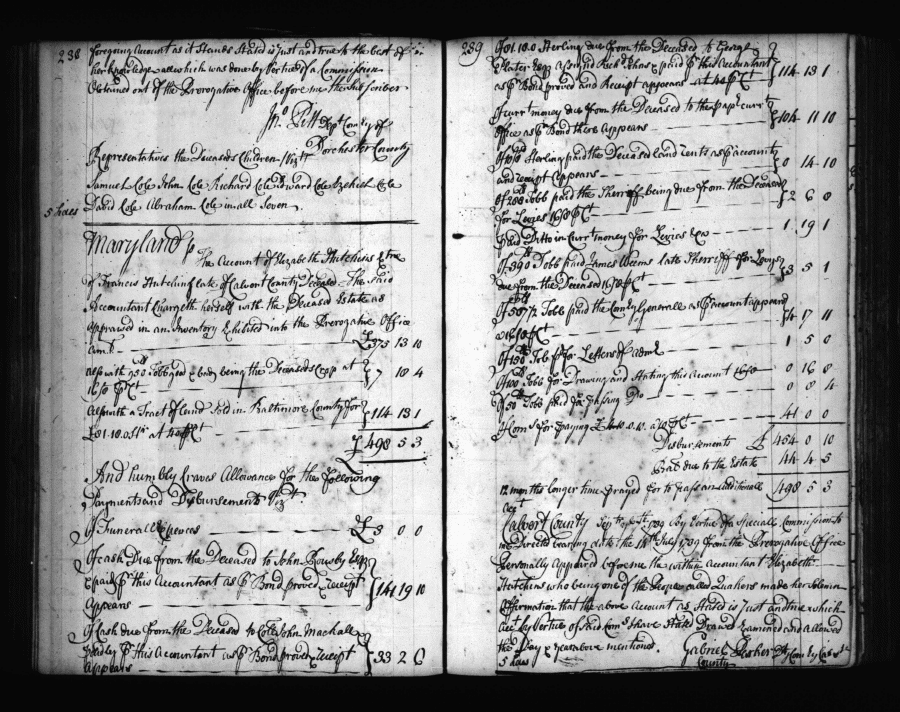 238
foregoing Account as it Stands Stated is just and true to the best of
her knowledge all which was done by Vertue of a Commission
Obtained out of the Prerogative Office before me the subscriber
Jno. Pitt Dept Comry of
Dorchester County
Representatives the Deceaseds Children Vizt
Samuel Cole John Cole Richard Cole Edward Cole Ezekiel Cole
David Cole Abraham Cole in all Seven
Maryland ss
The Account of Elizabeth Hutchins Extrx
of Francis Hutchins late of Calvert County Deceased The Said
Accountant Chargeth herself with the Deceased Estate as
Appraised in an Inventory Exhibited into the Prerogative Office
Amt. £ 375 13 10
also with 950 Tobbo being the Deceaseds Crop at
16/8 P Ct 7 18 4
Also with a Tract of Land Sold in Baltimore County for
£81.10.0 at P Ct 114 13 1
£ 498 5 3
And humbly Craves Allowance for the following
Payments and Disbursements Vizt
Of Funerall Expences £ 3 0 0
Of Cash Due from the Deceased to John Rousby Esqr
& paid P this Accountant as P Bond proved & receipt
Appears 141 19 10
Of Cash due from the Deceased to Collo John Mackall
paid by P this Accountant as P Bond proved & receipt
Appears 33 2 6
239
Of 81.10.0 Sterling due from the Deceased to George
Plater Esqr paid P this Accountant
as P Bond proved and Receipt appears at P Ct 114 13 1
Of curt money due from the Deceased to the paper curr
Office as P Bond there Appears 104 11 10
Of Sterling paid the Deceased Land Rents as P account
and receipt Appears 0 14 10
Of Tobb paid the Sherriff being due from the Deceased
for Levies 16/8 P Ct 2 6 8
Paid Ditto in Currt money for Levies &ca 1 19 1
Of 390 Tobb paid James Weems late Sherriff for Levys
due from the Deceased 16/8 P Ct 3 5 1
Of Tobb paid the Comry Generall as P account appears
at 16/8 P Ct 4 17 11
Of Tob pd for Letters of adm 1 5 0
Of 100 Tobb for Drawing and Stating this Account 16/8 0 16 8
Of 50 Tobb paid for passing Do 0 8 4
P Ct 41 0 0
Disbursements £ 454 0 10
Ball due to the Estate 44 4 5
12 months longer time prayed for to pass an additionall 498 5 3
Acct
Calvert County 1739 By Vertue of a Speciall Commission to
me Directed bearing date the 14th July 1739 from the Prerogative Office
Personally Appeared before me the within Accountant Elizabeth
Hutchins who being one of the People called Quakers made her Solemn
Affirmation that the above Account as Stated is Just and true which
Acct by Vertue of Said Coms I have Stated Drawed Examined and Allowed
the Day & year above mentioned
Gabriel Parker Dy Comry Calvt
County